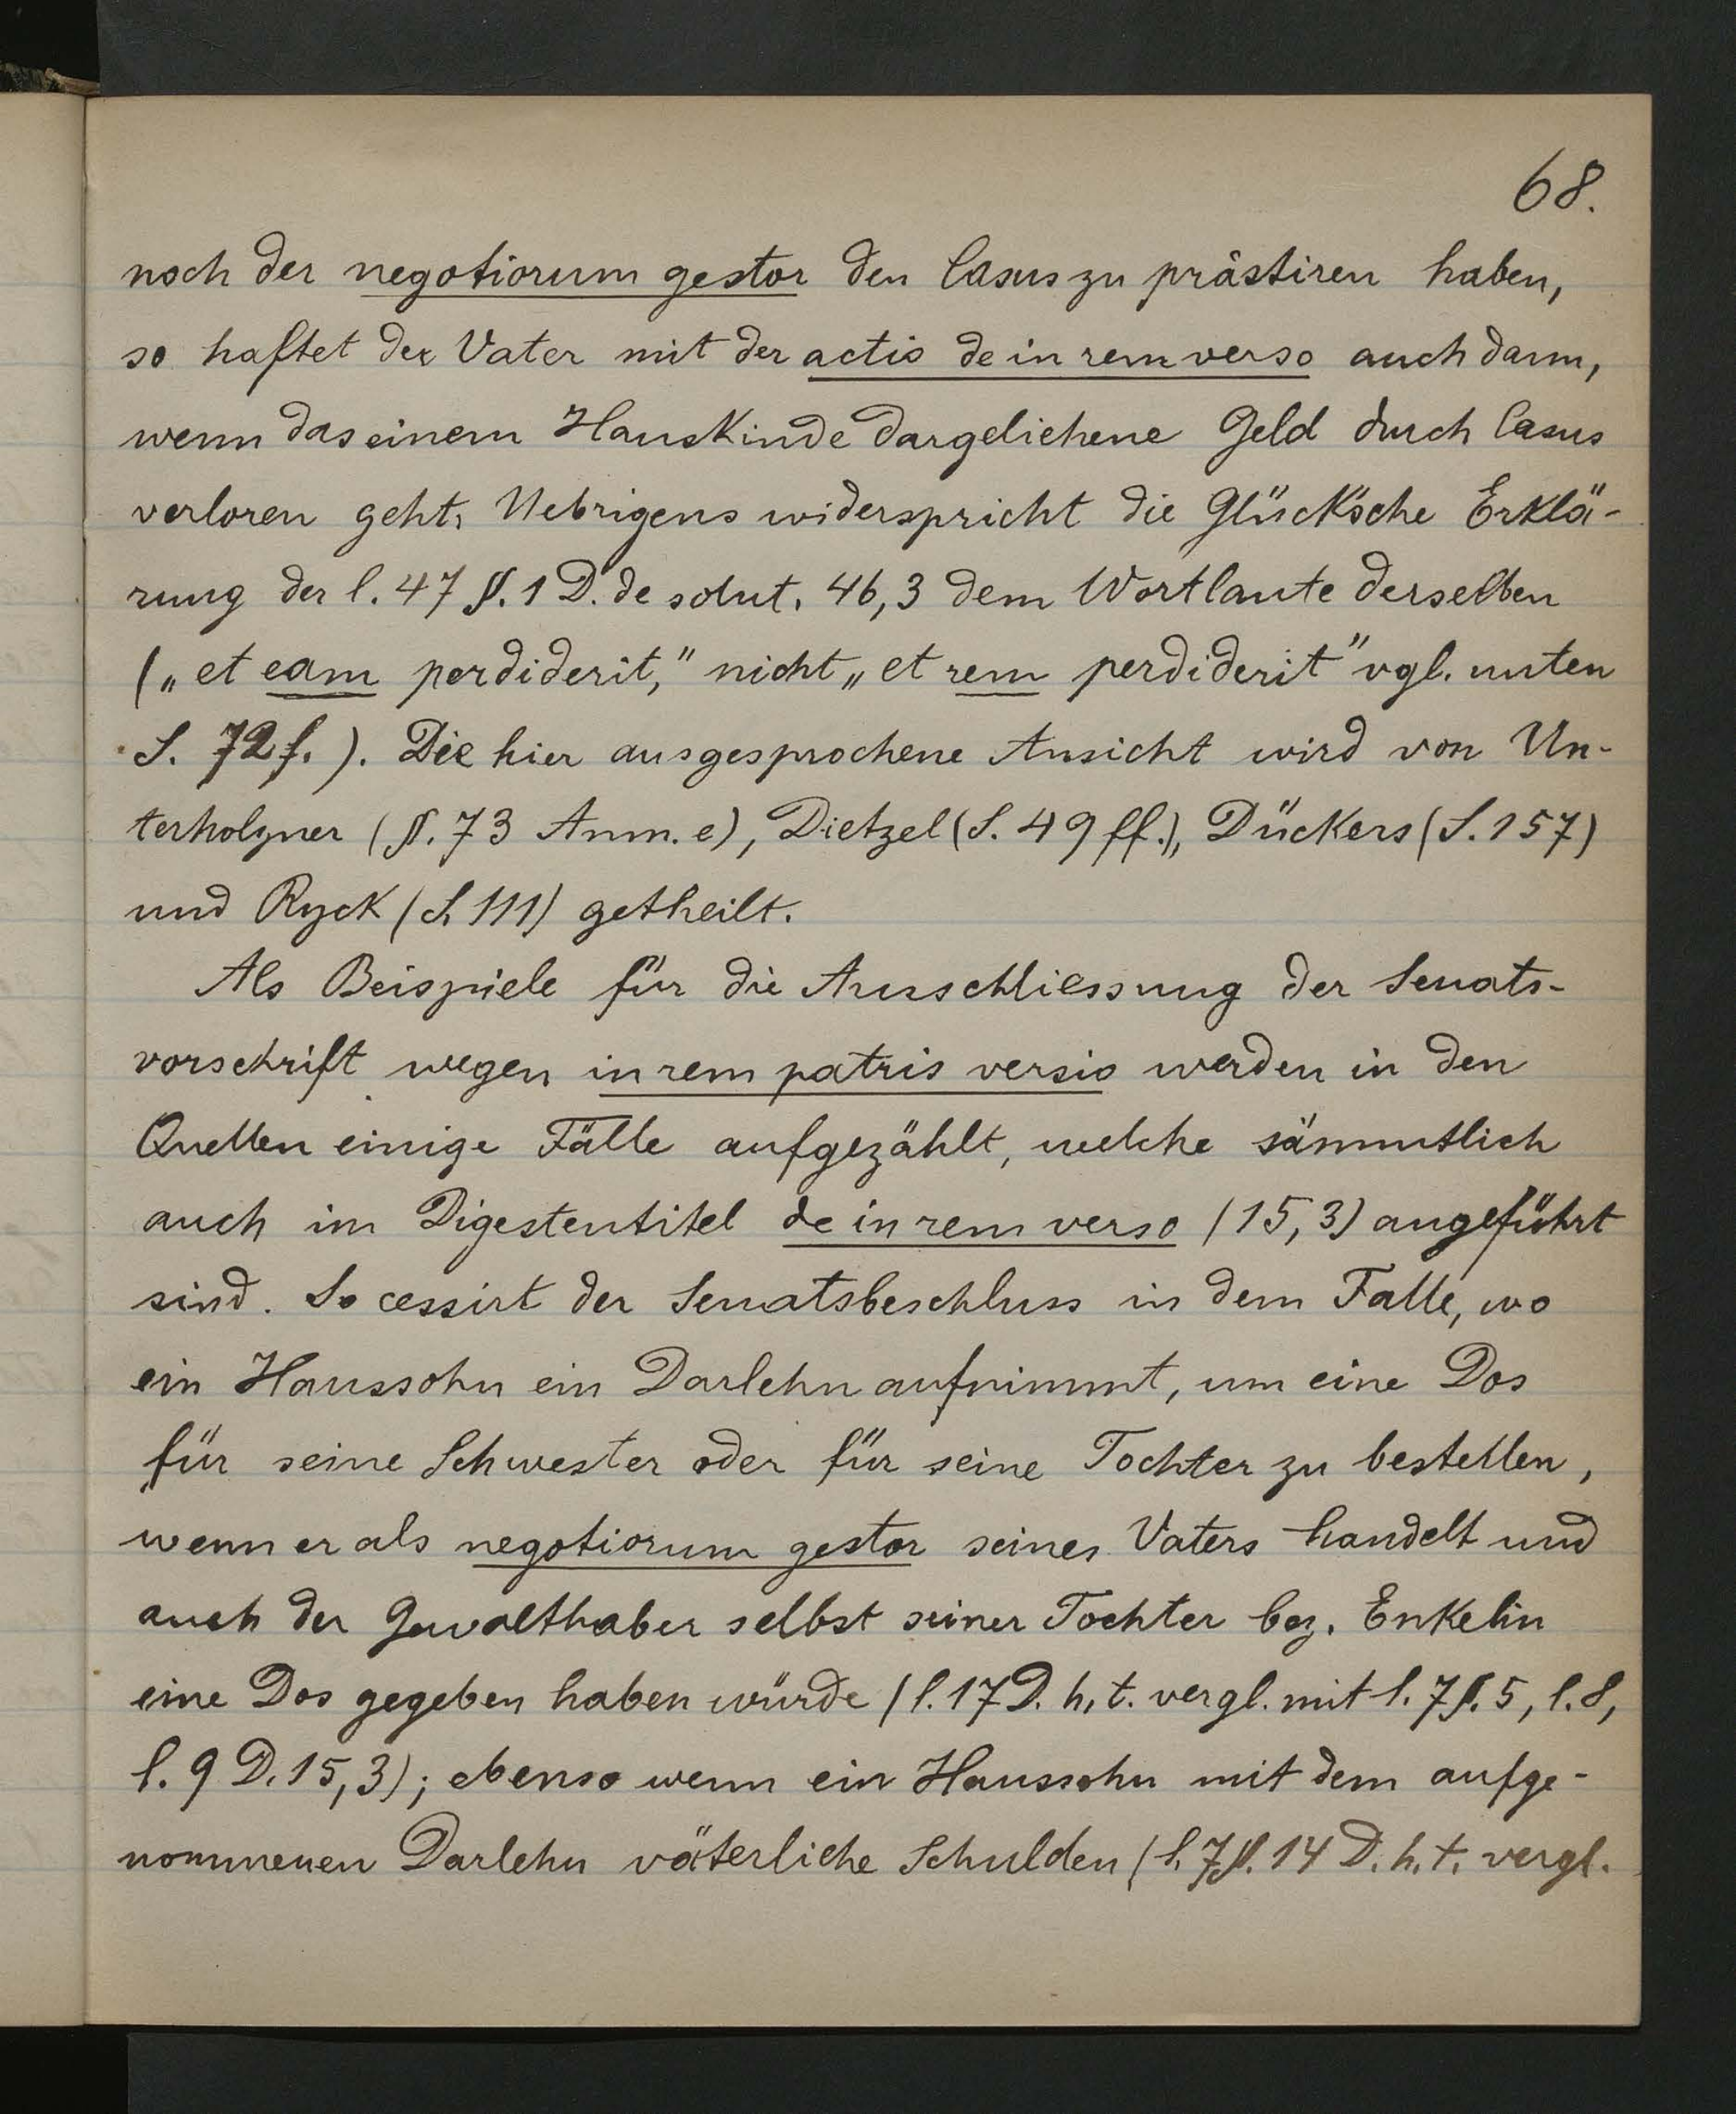 68.
noch der negotiorum gestor den Casus zu prästiren haben,
so haftet der Vater mit der actio de in rem verso auch dann,
wenn das einem Hauskinde dargeliehene Geld durch Casus
verloren geht. Uebrigens widerspricht die Glück'sche Erklä-
rung der l. 47 §. 1 D. de solut. 46,3 dem Wortlaute derselben
(„et eam perdiderit," nicht „et rem perdiderit" vgl. unten
S. 72 f.). Die hier ausgesprochene Ansicht wird von Un-
terholzner (§. 73 Anm. e), Dietzel (S. 49 ff.), Dückers (S. 157)
und Ryck (S. 111) getheilt.
Als Beispiele für die Ausschliessung der Senats-
vorschrift wegen in rem patris versio werden in den
Quellen einige Fälle aufgezählt, welche sämmtlich
auch im Digestentitel de in rem verso (15,3) angeführt
sind. So cessirt der Senatsbeschluss in dem Falle, wo
ein Haussohn ein Darlehn aufnimmt, um eine Dos
für seine Schwester oder für seine Tochter zu bestellen,
wenn er als negotiorum gestor seines Vaters handelt und
auch der Gewalthaber selbst seiner Tochter bez. Enkelin
eine Dos gegeben haben würde (l. 17 D. h. t. vergl. mit l. 7 §. 5, l. 8,
l. 9 D. 15,3); ebenso wenn ein Haussohn mit dem aufge-
nommenen Darlehn väterliche Schulden (l. 7 §. 14 D. h. t. vergl.